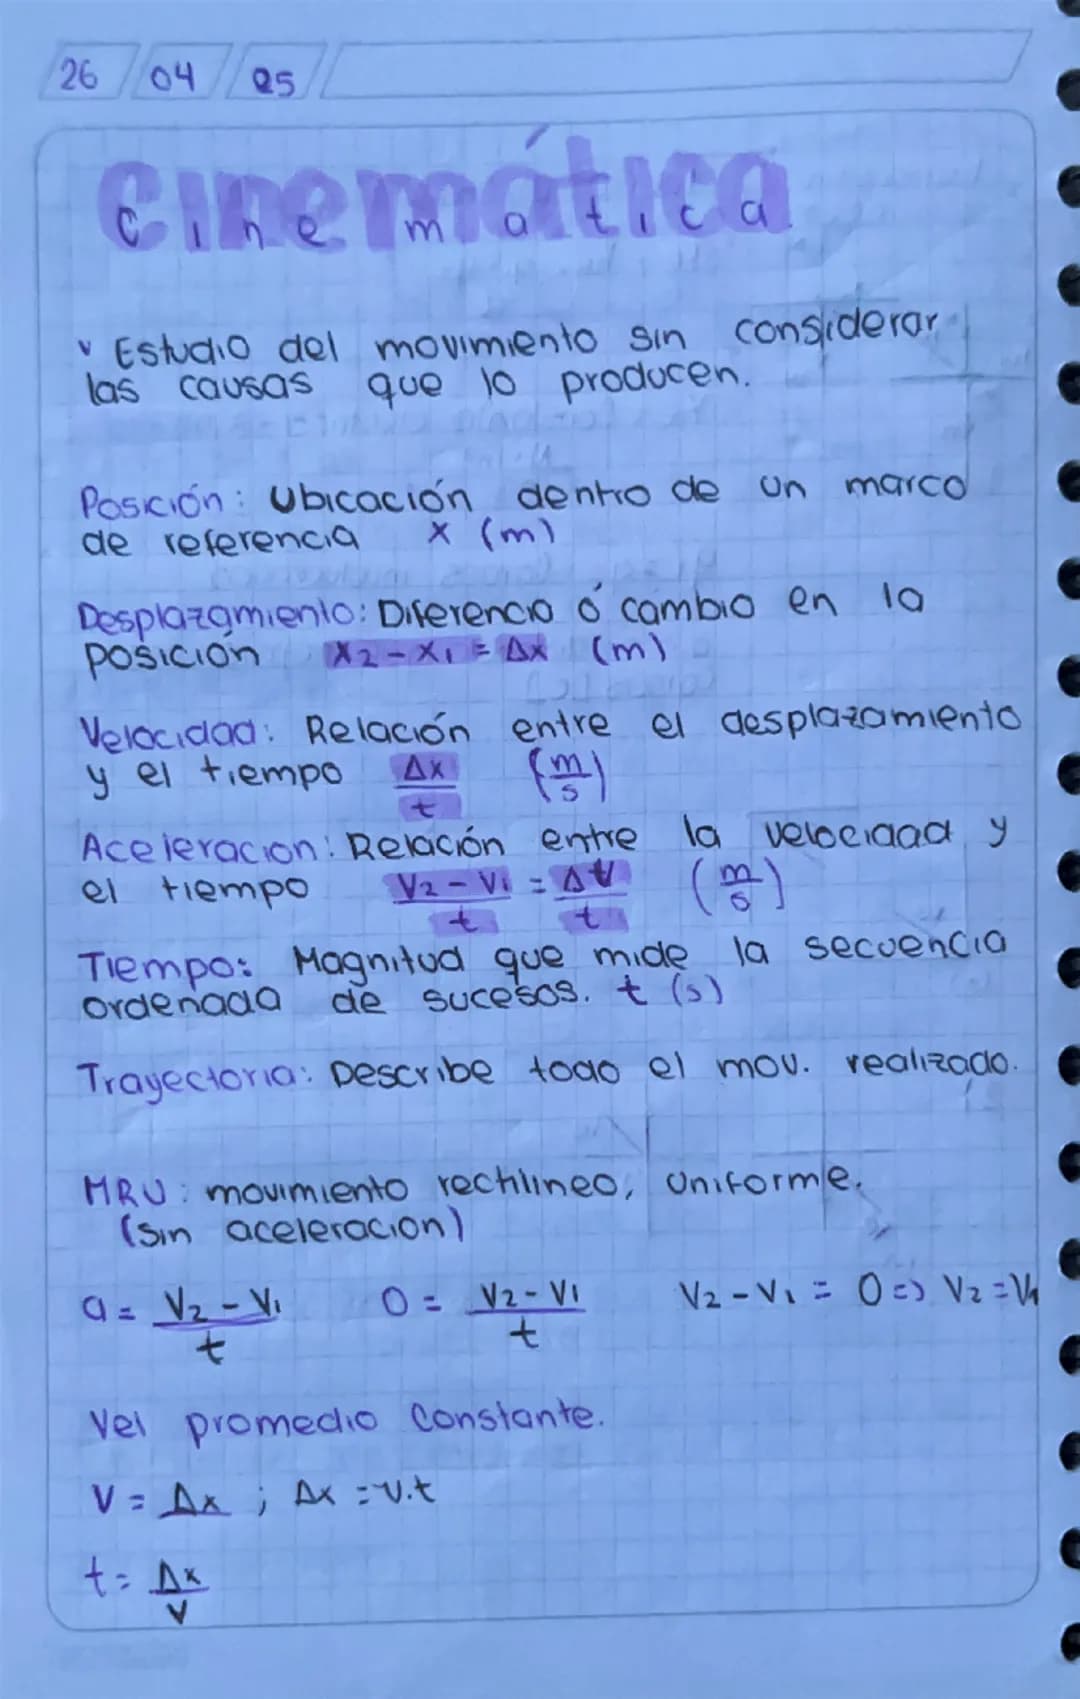 26 04 25
Cinemática
Cinematica
Estudio del movimiento sin considerar
las causas que lo producen.
Posición: Ubicación dentro de un marco
de referencia x (m)
Desplazamiento: Diferencia ó cambio en la
posición x2 - x1 = Δx (m)
Velocidad: Relación entre el desplazamiento
y el tiempo Δx/t (m/s)
Aceleracion: Relación entre la velocidad y
el tiempo V2 - V1/t = ΔV/t (m/s)
Tiempo: Magnitud que mide la secuencia
ordenada de sucesos. t (s)
Trayectoria: Describe todo el mov. realizado.
MRU: movimiento rectilineo, Uniforme.
(sin aceleracion)
a = V2 - V1/t 0 = V2 - V1/t V2 - V1 = 0 => V2 = V1
Vel promedio Constante.
V = Δx ; Δx = v.t
t = Δx/v